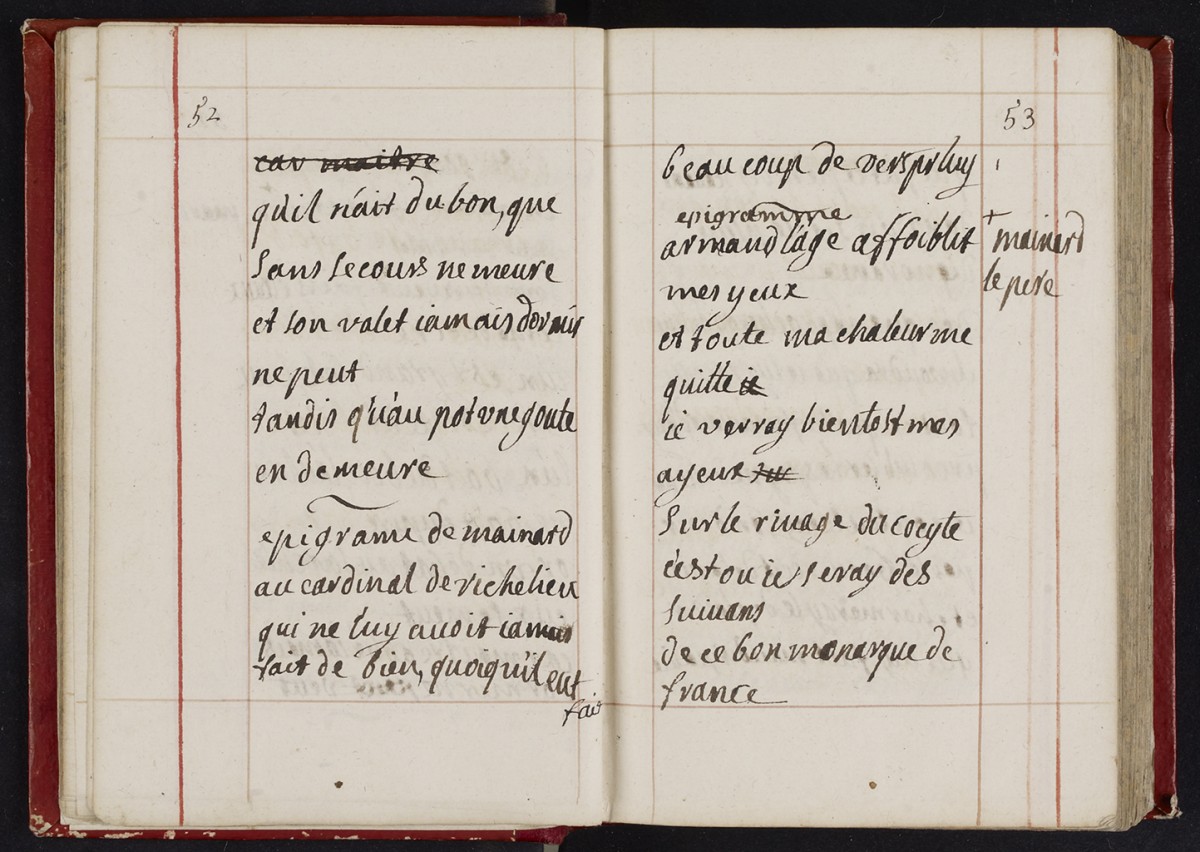 52
car maitre
qu'il n'ait du bon, que
sans secours ne meure
et son valet iamais dormir
ne peut
tandis qu'au pot vne goute
en demeure
epigrame de mainard
au cardinal de richelieu
qui ne luy auoit iamais
fait de bien, quoiqu'il eut
fair
53
beaucoup de vers pr luy
epigramme
armand l'age affoiblit
mes yeux
+ mainard
le pere
et toute ma chaleur me
quitte ie
ie verray bientost mes
ayeux sur
sur le riuage du cocyte
c'est ou ie seray des
suiuans
de ce bon monarque de
france